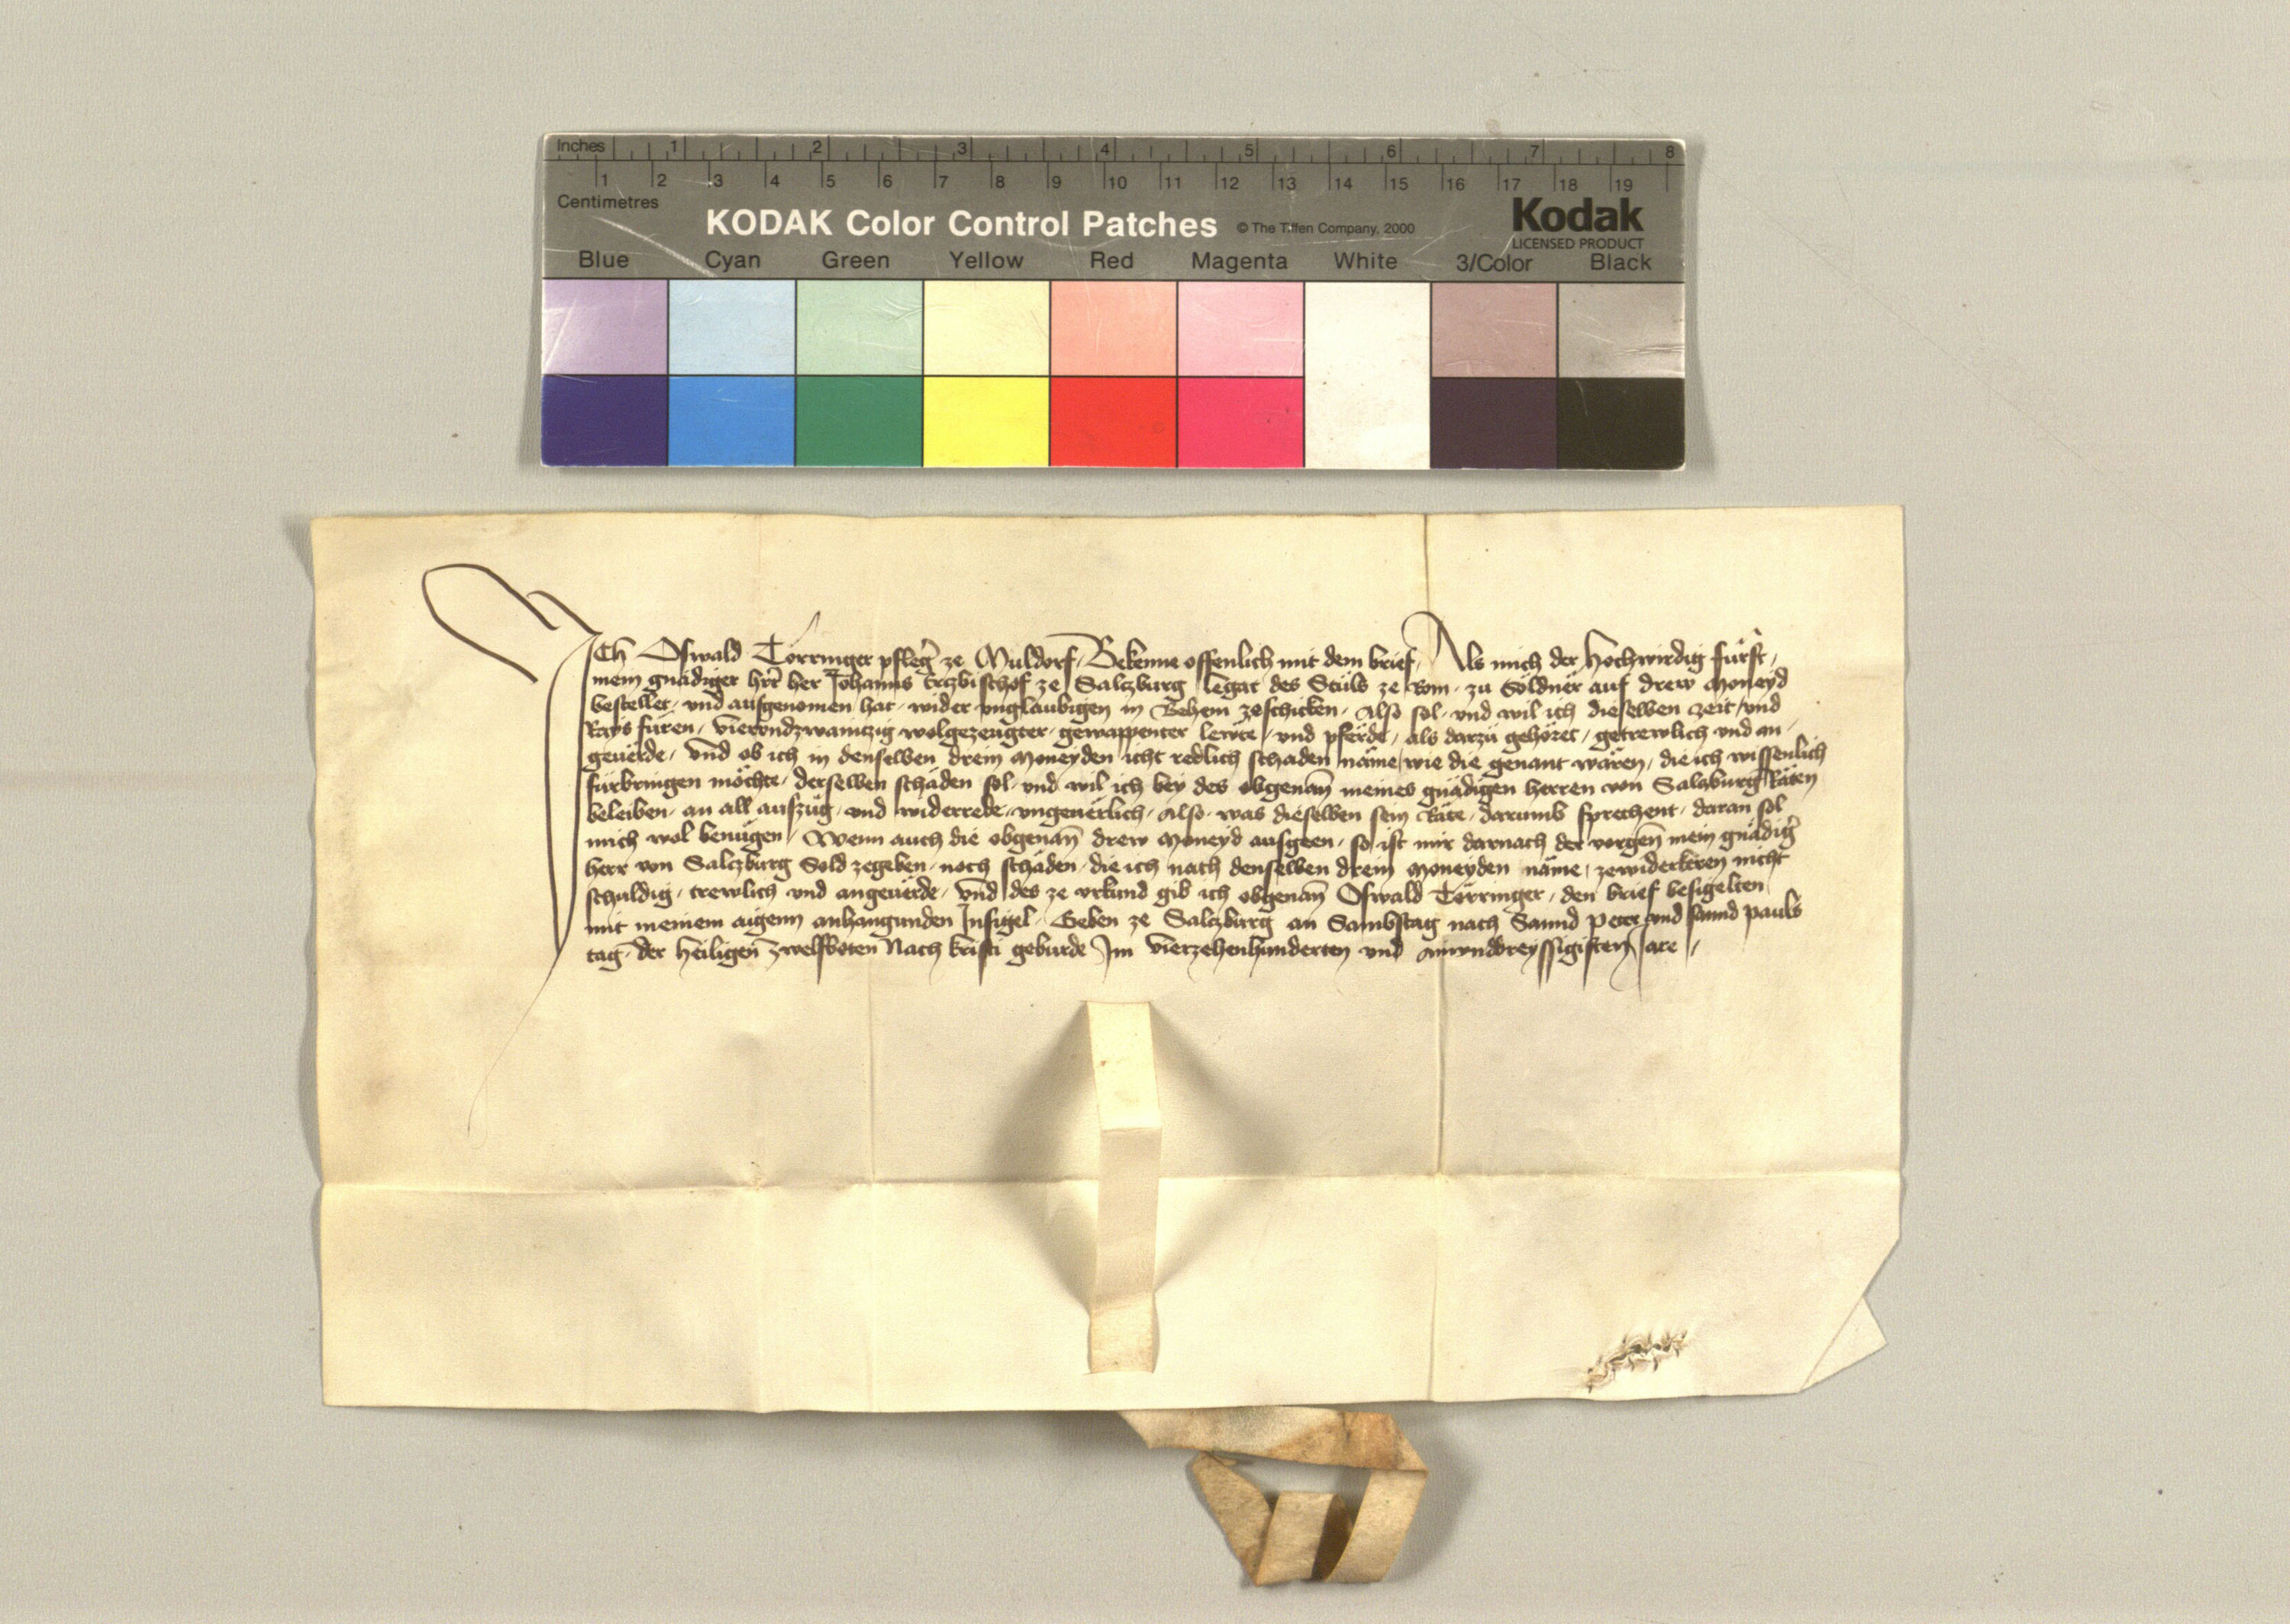 Inches 1 2 3 4 5 6 7 8
1 2 3 4 5 6 7 8 9 10 11 12 13 14 15 16 17 18 19
Centimetres
KODAK Color Control Patches © The Tiffen Company, 2000 Kodak
LICENSED PRODUCT
Blue Cyan Green Yellow Red Magenta White 3/Color Black
ICh Oswald Törringer pfleg̃ ze Muldorf, Bekenne offenlich mit dem brief, Als mich der Hochwirdig fürst,
mein gnädiger hrr̃ her Johanns Erczbischof ze Salczburg legat des Stůls ze Rom, zu Söldner auf drew Moneyd
bestellet, und aufgenomen hat, wider unglaubigen in Behem zeschicken, Also sol, und wil ich dieselben zeit, und
Rays füren, vierundzwainczig wolgezeugter, gewappenter lewte, und pferde, als darzů gehöret, getrewlich und an,
geuerde, Und ob ich in denselben drein Moneyden icht redlich schaden näme, wie die genant wären, die ich wissenlich
fürbringen möchte, derselben schäden sol, und wil ich bey des obgenañ meines gnädigen herren von Salczburg Räten
beleiben, an all aufzüg, und widerrede, ungeuerlich, Also, was dieselben sein Räte, darumb sprechent, daran sol
mich wol benügen, Wenn auch die obgenañ drew Moneyd ausgeen, so ist mir darnach der vorgeñ mein gnädig̃
herr von Salczburg Sold zegeben, noch schäden, die ich nach denselben drein Moneyden näme, zewiderkeren nicht
schuldig, trewlich und angeuerde, Und des ze urkund gib ich obgenañ Oswald Törringer, den brief besigelten
mit meinem aigenn anhangunden Insigel, Geben ze Salczburg an Sambstag nach Sannd Peter und sannd pauls
tag, der heiligeñ zwelfboten Nach kristi geburde Im vierzehenhunderten und ainunddreyssigisten Jare,